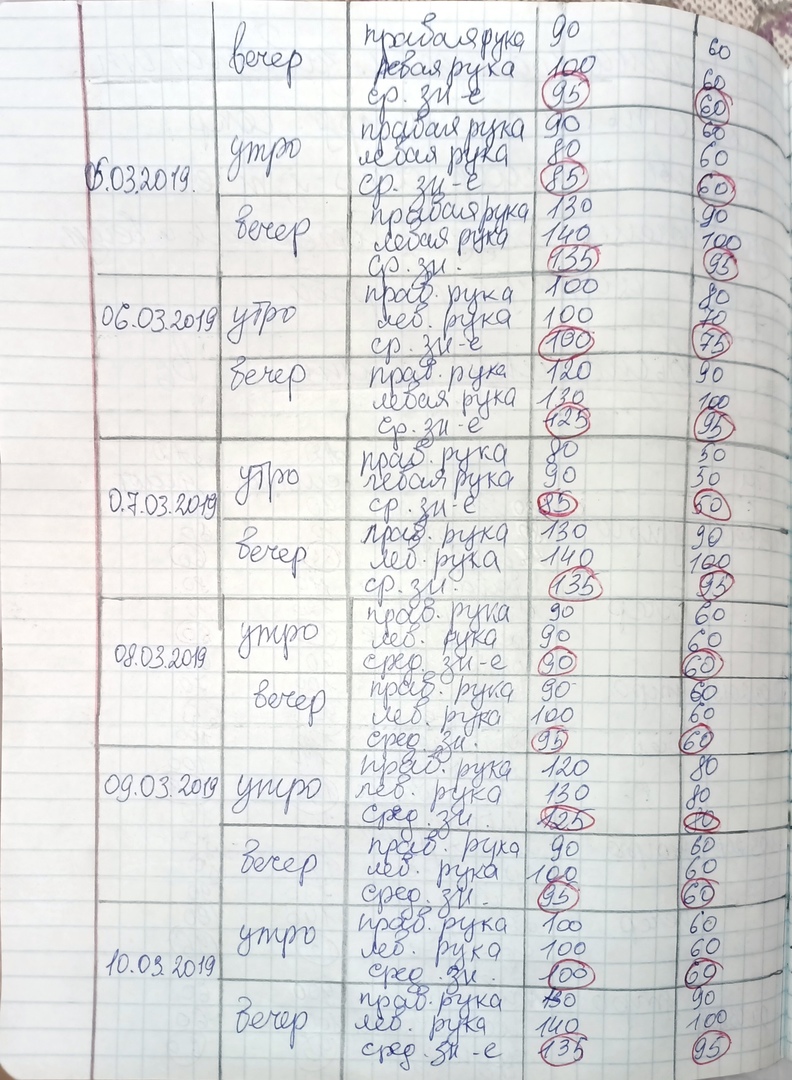 вечер правая рука 90 60
левая рука 100 60
ср. зн-е 95 60
05.03.2019. утро правая рука 90 60
левая рука 80 60
ср. зн-е 85 60
вечер правая рука 130 90
левая рука 140 100
ср. зн. 135 95
06.03.2019 утро прав. рука 100 80
лев. рука 100 70
ср. зн-е 100 75
вечер прав. рука 120 90
левая рука 130 100
ср. зн-е 125 95
07.03.2019 утро прав. рука 80 50
левая рука 90 50
ср. зн-е 85 50
вечер прав. рука 130 90
лев. рука 140 100
ср. зн. 135 95
08.03.2019 утро прав. рука 90 60
лев. рука 90 60
сред. зн-е 90 60
вечер прав. рука 90 60
лев. рука 100 60
сред. зн. 95 60
09.03.2019 утро прав. рука 120 80
лев. рука 130 80
сред. зн. 125
вечер прав. рука 90 60
лев. рука 100 60
сред. зн. 95 60
10.03.2019 утро прав. рука 100 60
лев. рука 100 60
сред. зн. 100 60
вечер прав. рука 130 90
лев. рука 140 100
сред. зн-е 135 95